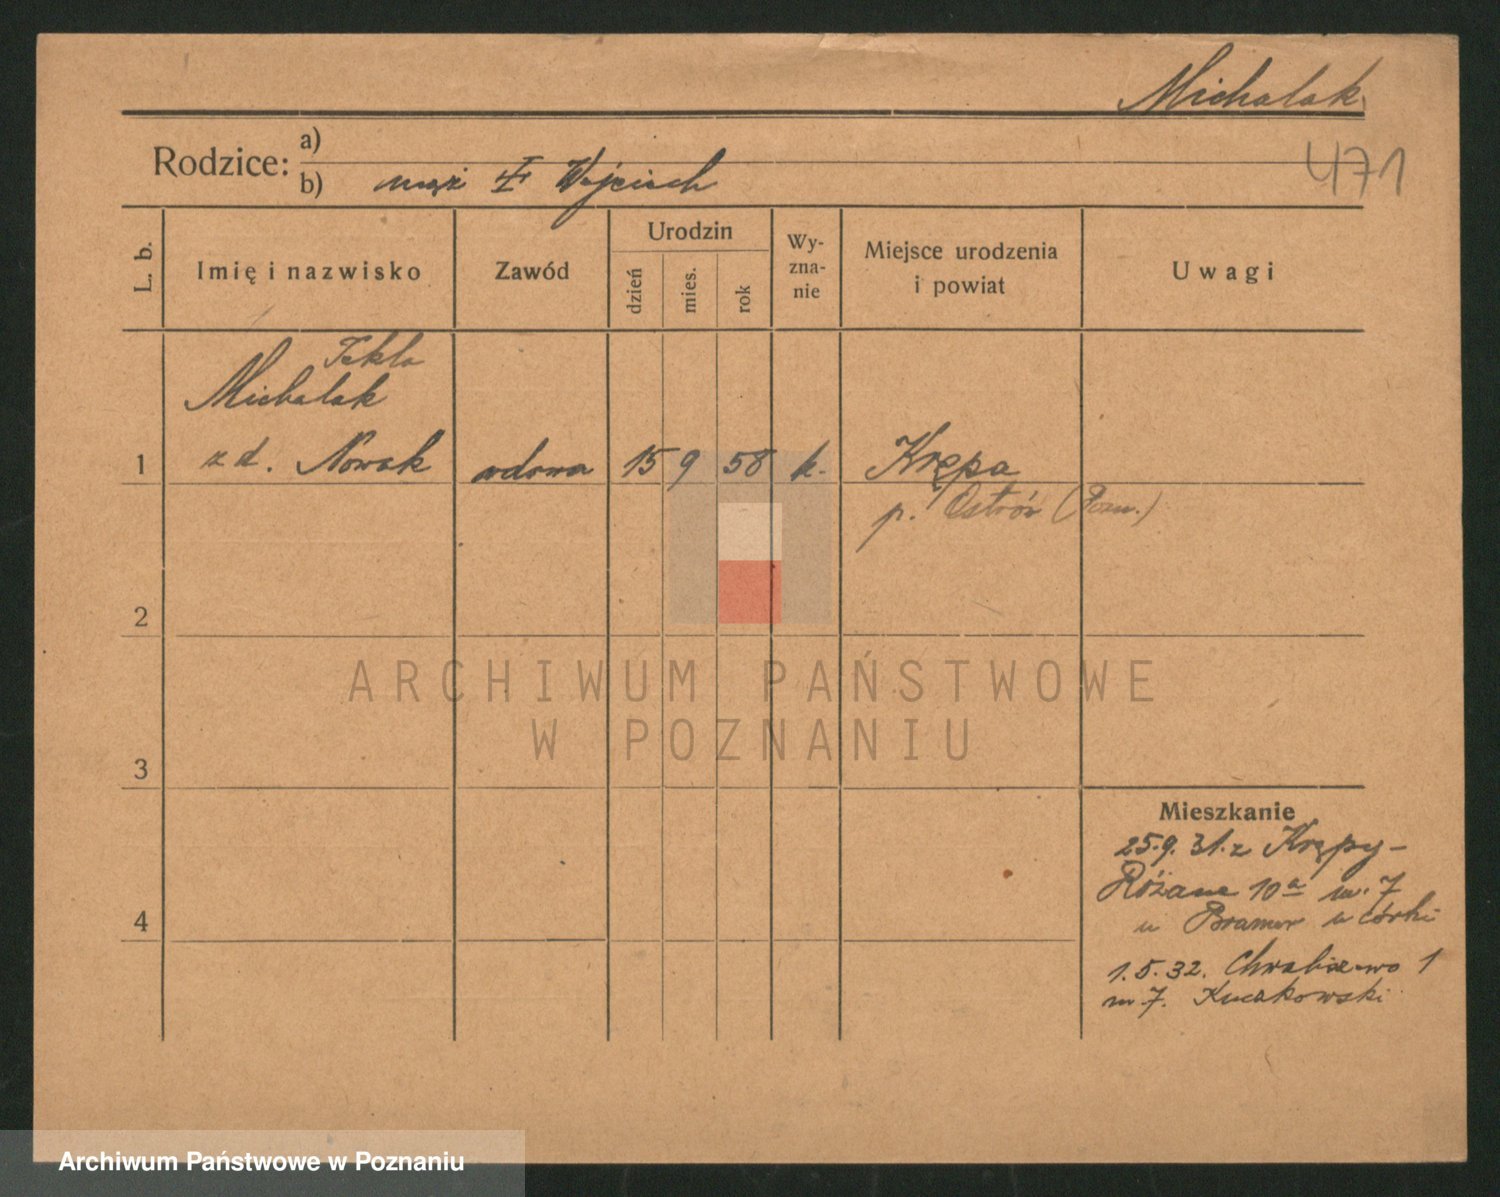 Michalak
471
Rodzice: a)
b) mąż † Wojciech
L. b.
Imię i nazwisko
Zawód
Urodzin
dzień
mies.
rok
Wy-
zna-
nie
Miejsce urodzenia
i powiat
Uwagi
Tekla
Michalak
1 zd. Nowak wdowa 15 9 58 k. Krępa
p. Ostrów (Pozn.)
2
3
4
Mieszkanie
25.9.31. z Krępy-
Różana 10a m. 7
u córki
1.5.32. Chwaliszewo 1
m. 7.
ARCHIWUM PAŃSTWOWE
W POZNANIU
Archiwum Państwowe w Poznaniu